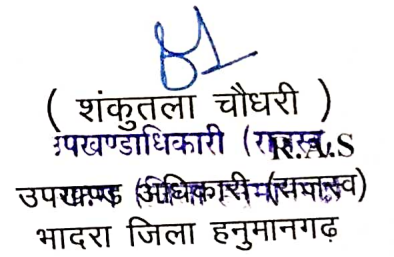 ( शंकुतला चौधरी )
उपखण्डाधिकारी (राजस्व R.A.S
उपखण्ड अधिकारी (राजस्व)
भादरा जिला हनुमानगढ़